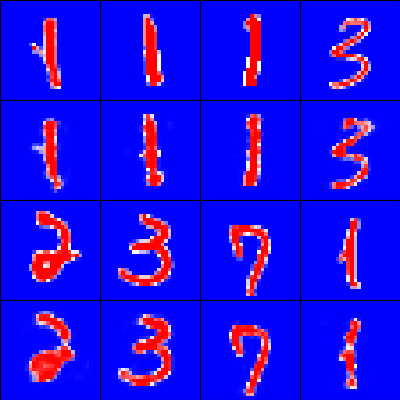 1 1 1 3
1 1 1 3
2 3 7 1
2 3 7 1